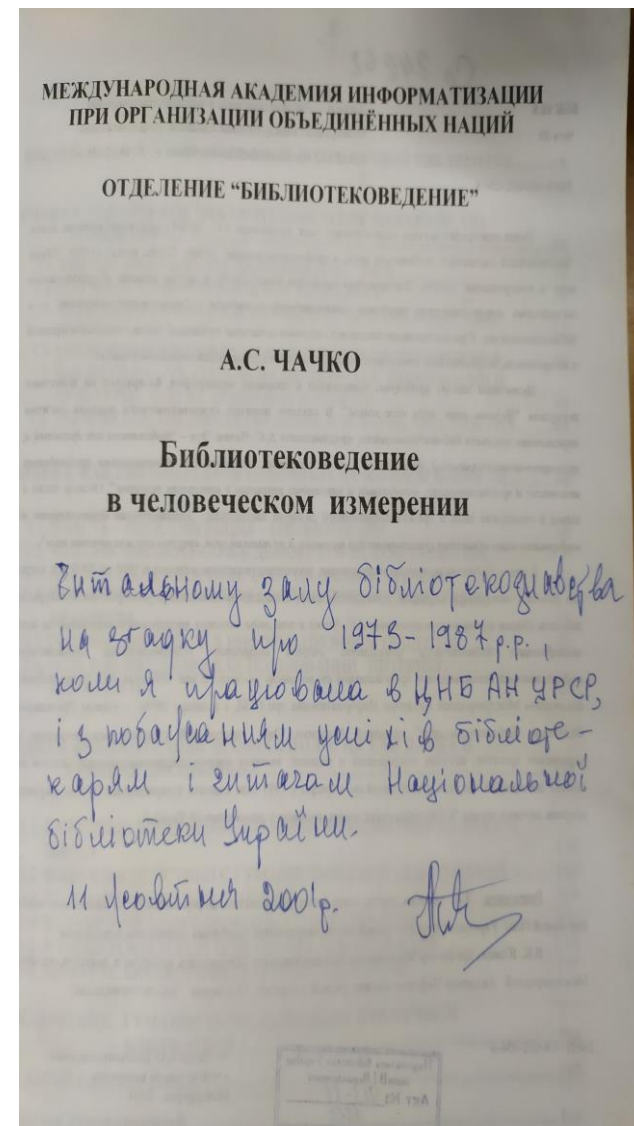 МЕЖДУНАРОДНАЯ АКАДЕМИЯ ИНФОРМАТИЗАЦИИ
ПРИ ОРГАНИЗАЦИИ ОБЪЕДИНЁННЫХ НАЦИЙ
ОТДЕЛЕНИЕ “БИБЛИОТЕКОВЕДЕНИЕ”
А.С. ЧАЧКО
Библиотековедение
в человеческом измерении
Читальному залу бібліотекознавства
на згадку про 1973-1987 р.р.,
коли я працювала в ЦНБ АН УРСР,
і з побажанням успіхів бібліоте-
карям і читачам Національної
бібліотеки України.
11 жовтня 2001р.